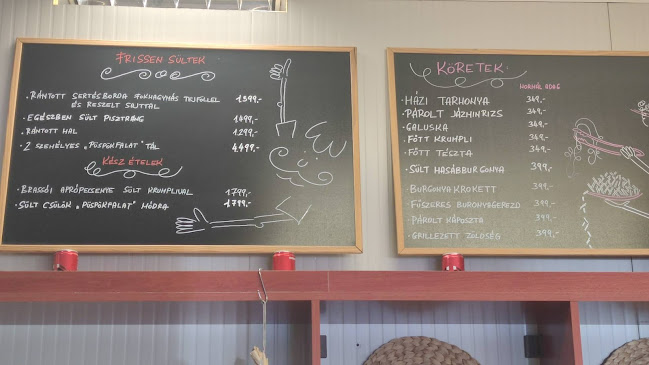 FRISSEN SÜLTEK
• RÁNTOTT SERTÉSBORDA FOKHAGYMÁS TEJFÖLLEL 1399,-
ÉS RESZELT SAJTTAL
• EGÉSZBEN SÜLT PISZTRÁNG 1499,-
• RÁNTOTT HAL 1.299,-
• 2 SZEMÉLYES „PÜSPÖKFALAT" TÁL 4.499,-
KÉSZ ÉTELEK
• BRASSÓI APRÓPECSENYE SÜLT KRUMPLIVAL 1.799,-
• SÜLT CSÜLÖK „PÜSPÖKFALAT" MÓDRA 1.799,-
KÖRETEK
NORMÁL ADAG
• HÁZI TARHONYA 349,-
• PÁROLT JÁZMINRIZS 349,-
• GALUSKA 349,-
• FŐTT KRUMPLI 349,-
• FŐTT TÉSZTA 349,-
• SÜLT HASÁBBURGONYA 399,-
• BURGONYAKROKETT 399,-
• FŰSZERES BURGONYAGEREZD 399,-
• PÁROLT KÁPOSZTA 399,-
• GRILLEZETT ZÖLDSÉG 399,-